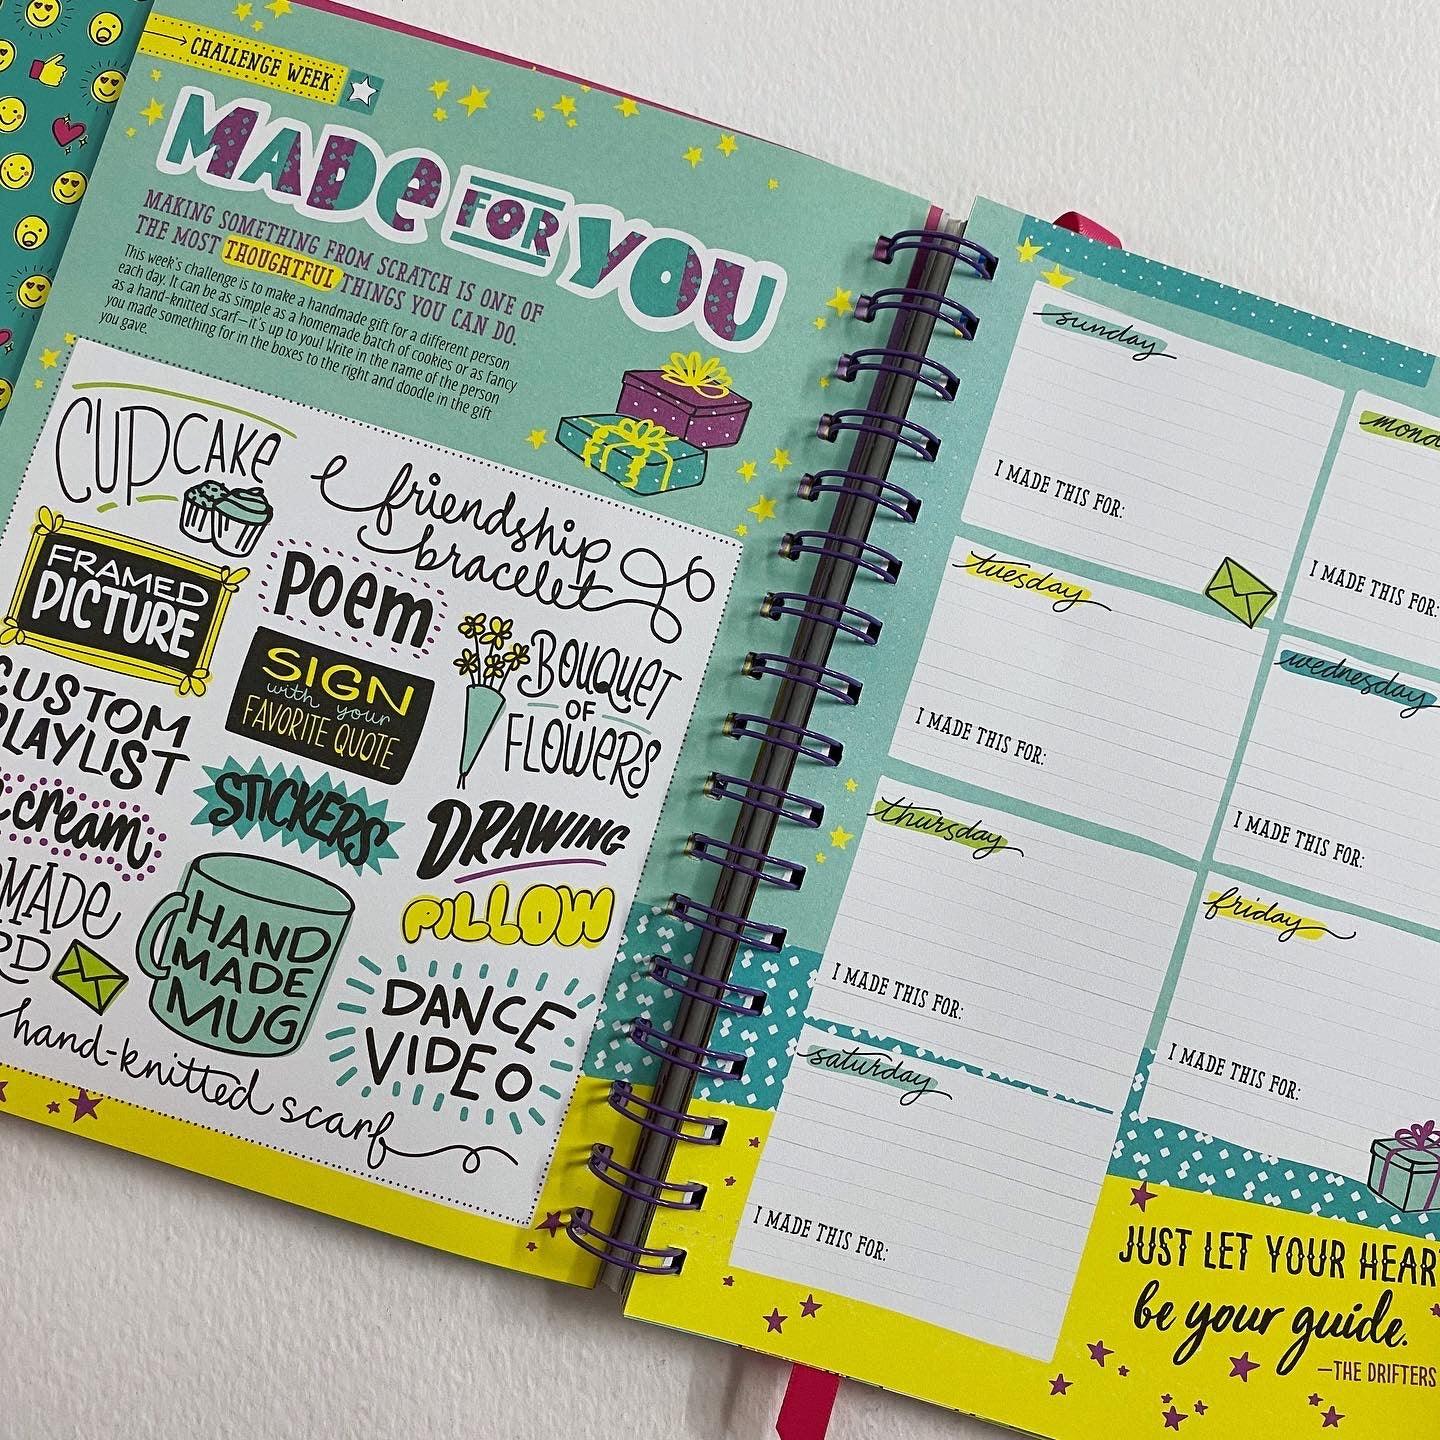 CHALLENGE WEEK
MADE FOR YOU
MAKING SOMETHING FROM SCRATCH IS ONE OF
THE MOST THOUGHTFUL THINGS YOU CAN DO.
This week's challenge is to make a handmade gift for a different person
each day. It can be as simple as a homemade batch of cookies or as fancy
as a hand-knitted scarf—it's up to you! Write in the name of the person
you made something for in the boxes to the right and doodle in the gift
you gave.
CUPCAKE
friendship
bracelet
FRAMED
PICTURE
poem
SIGN
with your
FAVORITE QUOTE
BOUQUET
OF
FLOWERS
CUSTOM
PLAYLIST
STICKERS
cream
DRAWING
PILLOW
MADE
RD
HAND
MADE
MUG
DANCE
VIDEO
hand-knitted scarf
sunday
I MADE THIS FOR:
mond
I MADE THIS FOR:
tuesday
I MADE THIS FOR:
wednesday
I MADE THIS FOR:
thursday
I MADE THIS FOR:
friday
I MADE THIS FOR:
saturday
I MADE THIS FOR:
JUST LET YOUR HEAR
be your guide.
—THE DRIFTERS